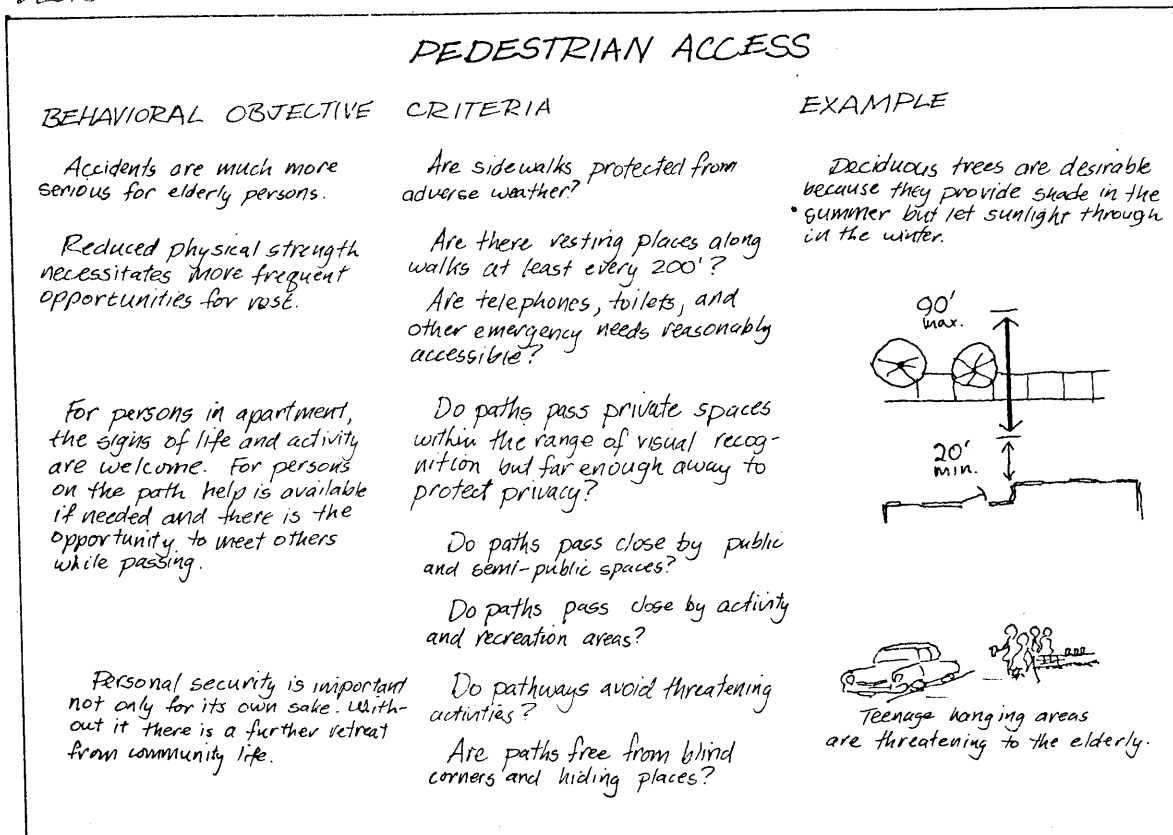 PEDESTRIAN ACCESS
BEHAVIORAL OBJECTIVE
Accidents are much more
serious for elderly persons.
Reduced physical strength
necessitates more frequent
opportunities for rest.
For persons in apartment,
the signs of life and activity
are welcome. For persons
on the path help is available
if needed and there is the
opportunity to meet others
while passing.
Personal security is important
not only for its own sake. With-
out it there is a further retreat
from community life.
CRITERIA
Are sidewalks protected from
adverse weather?
Are there resting places along
walks at least every 200'?
Are telephones, toilets, and
other emergency needs reasonably
accessible?
Do paths pass private spaces
within the range of visual recog-
nition but far enough away to
protect privacy?
Do paths pass close by public
and semi-public spaces?
Do paths pass close by activity
and recreation areas?
Do pathways avoid threatening
activities?
Are paths free from blind
corners and hiding places?
EXAMPLE
Deciduous trees are desirable
because they provide shade in the
summer but let sunlight through
in the winter.
90'
max.
20'
min.
Teenage hanging areas
are threatening to the elderly.